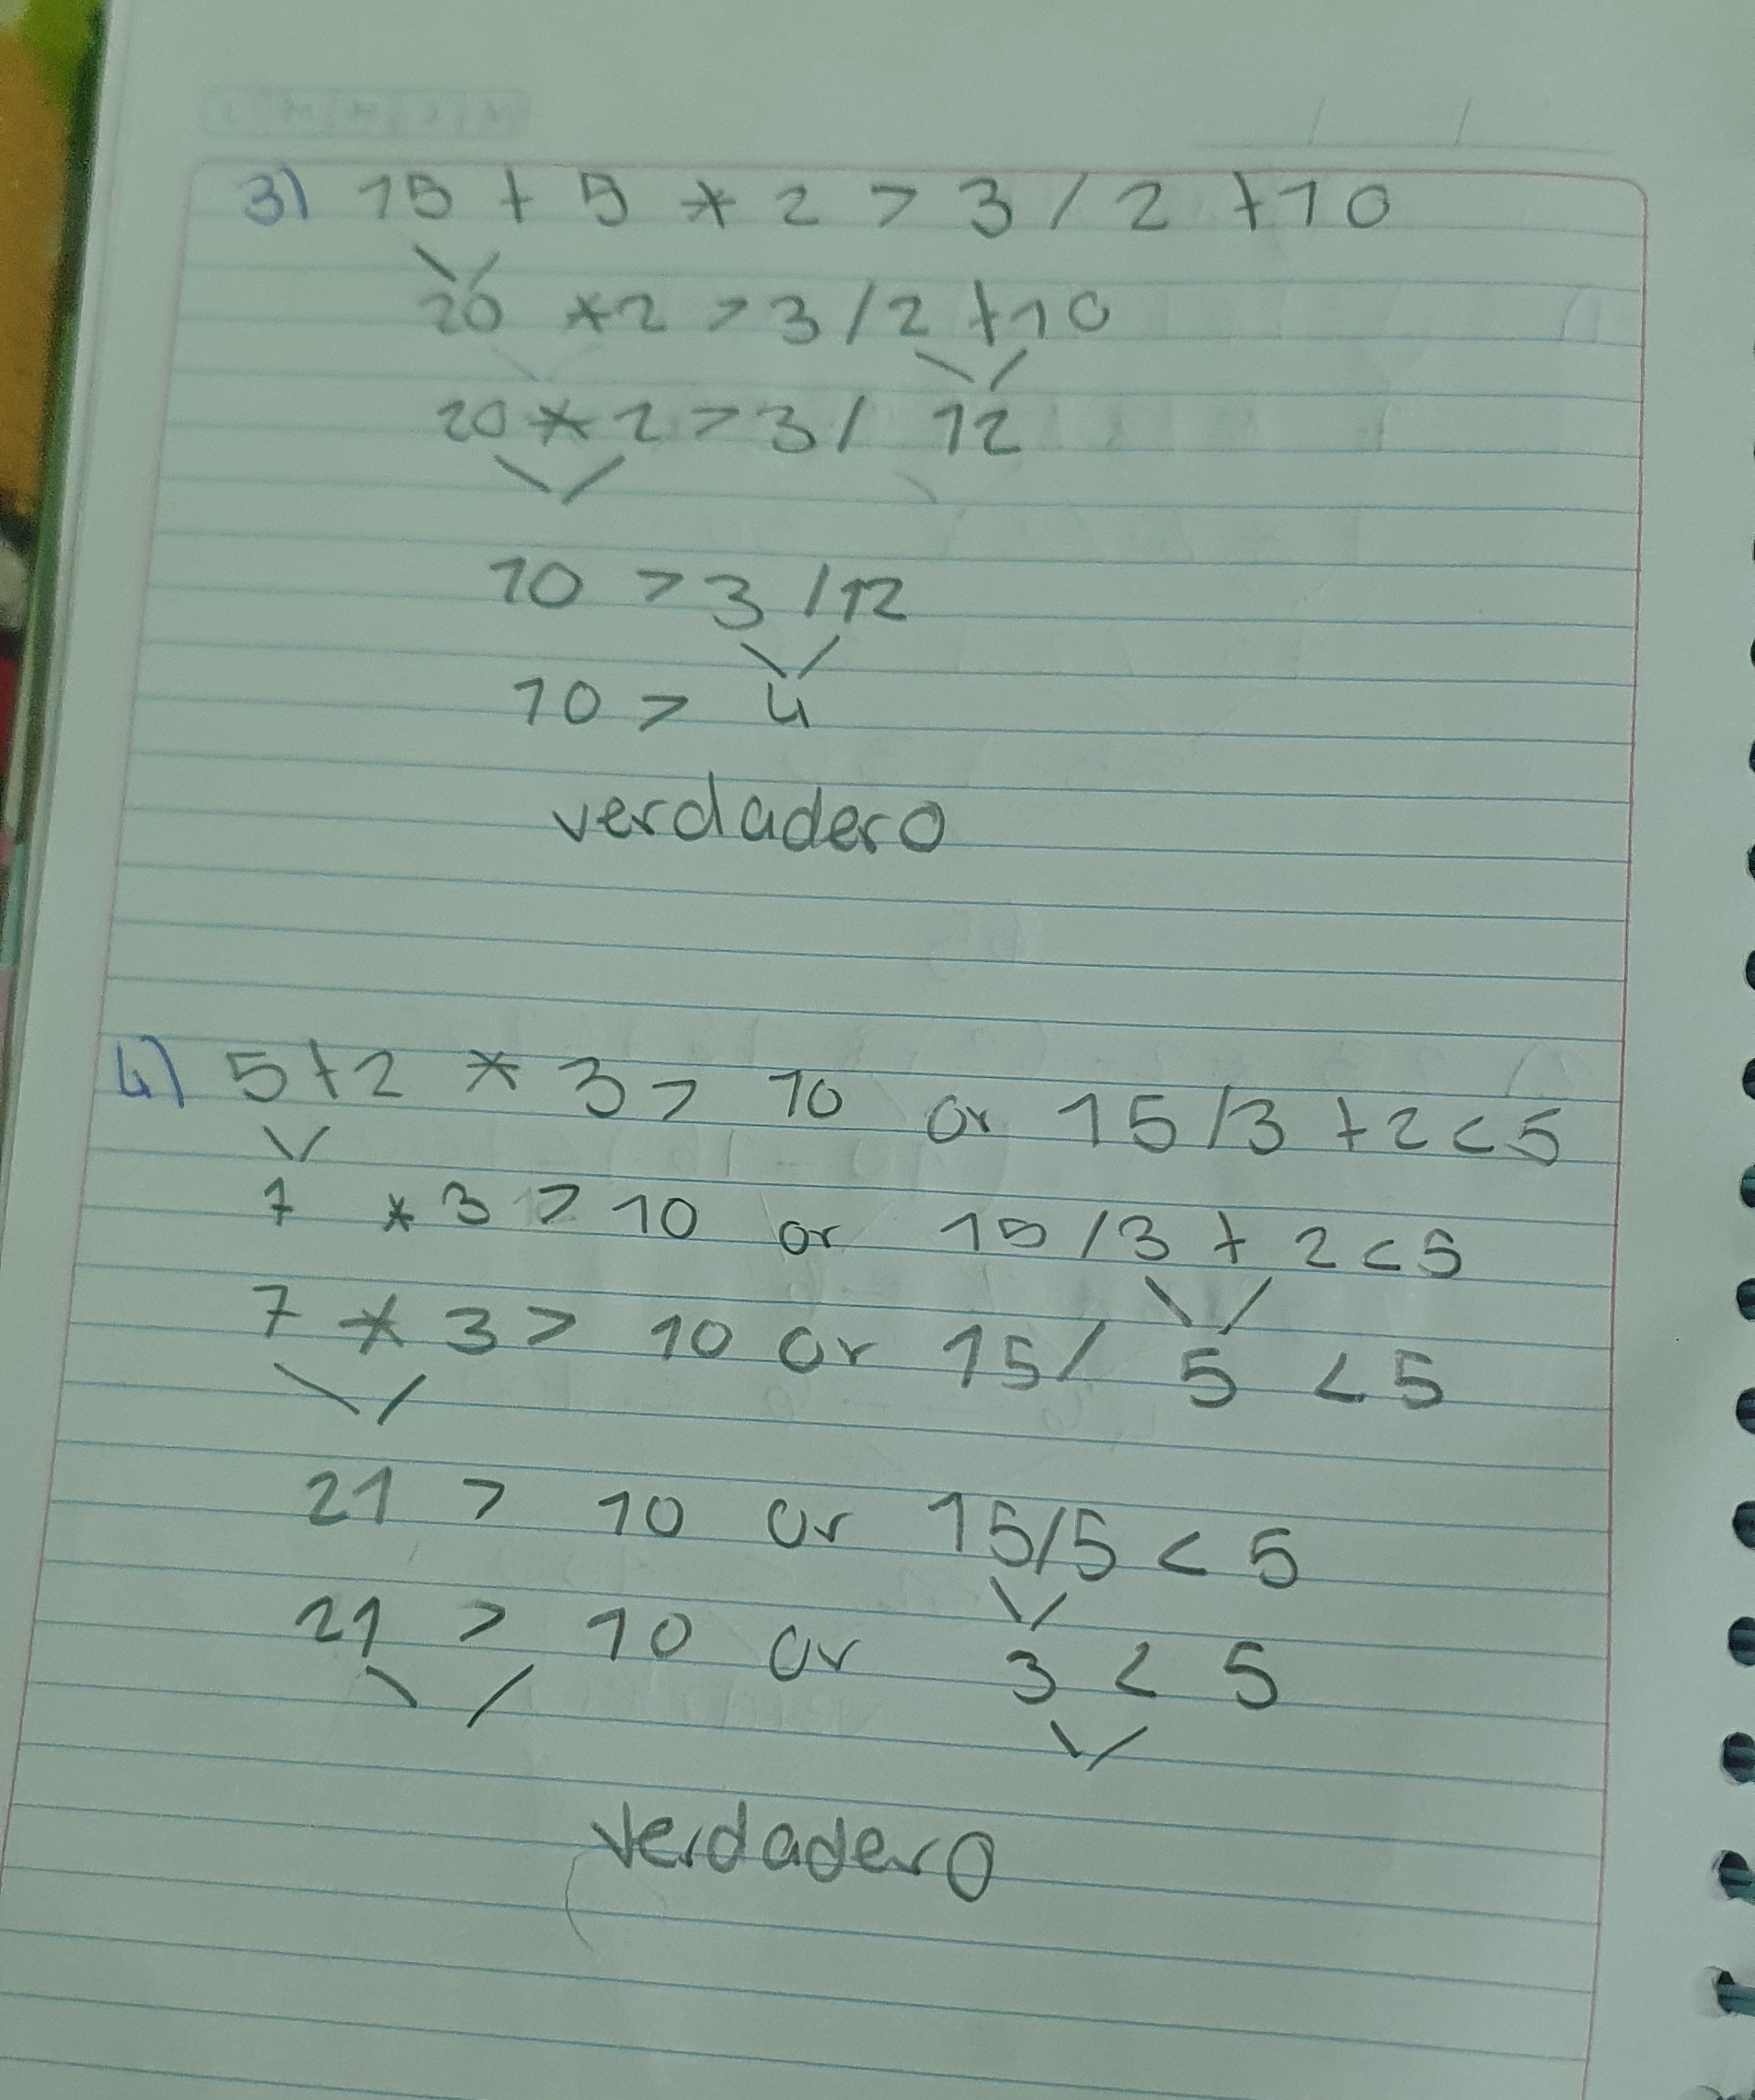 3) 15 + 5 * 2 > 3 / 2 + 10
20 * 2 > 3 / 2 + 10
20 * 2 > 3 / 12
10 > 3 / 12
10 > 4
verdadero
4) 5 + 2 * 3 > 10 or 15 / 3 + 2 < 5
7 * 3 > 10 or 15 / 3 + 2 < 5
7 * 3 > 10 or 15 / 5 < 5
21 > 10 or 15/5 < 5
21 > 10 or 3 < 5
Verdadero